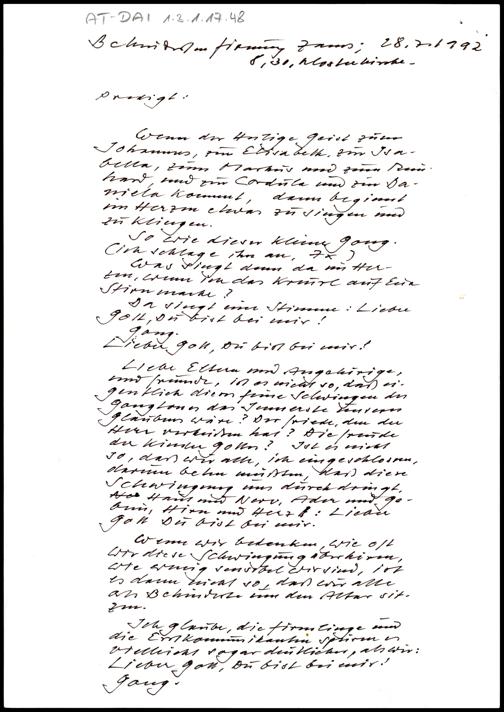 AT-DAI 1.2.1.17.48
Behindertenfirmung Zams; 28.
8,30, Klosterkirche.
Predigt:
Wenn der Heilige Geist zum
Johannes, zur Elisabeth, zur Isa-
bella, zum Markus und zum
hard und zur Cordula und zur Da-
niela kommt, dann beginnt
im Herzen etwas zu singen und
zu klingen.
So wie dieser kleine Gong.
(ich schlage ihn an, 7x)
Was singt denn da im Her-
zen, wenn ich das Kreuzl auf Eure
Stirn mache?
Da singt eine Stimme: Lieber
Gott, Du bist bei mir!
Gong.
Lieber Gott, Du bist bei mir!
Liebe Eltern und Angehörige,
und Freunde, ist es nicht so, daß ei-
gentlich dieses feine Schwingen des
Gongtones das Innerste unseres
Glaubens wäre? Der Friede, den der
Herr verheißen hat? Die Freude
der Kinder Gottes? Ist es nicht
so, daß wir alle, ich eingeschlossen,
darum beten müßten, daß diese
Schwingung uns durchdringt,
Haut und Nerv, Ader und Ge-
bein, Hirn und Herz: Lieber
Gott Du bist bei mir.
Wenn wir bedenken, wie oft
wir diese Schwingung überhören,
wie wenig sensibel wir sind, ist
es dann nicht so, daß wir alle
als Behinderte um den Altar sit-
zen.
Ich glaube, die Firmlinge und
die Erstkommunikanten spüren es
vielleicht sogar deutlicher, als wir:
Lieber Gott, Du bist bei mir!
Gong.